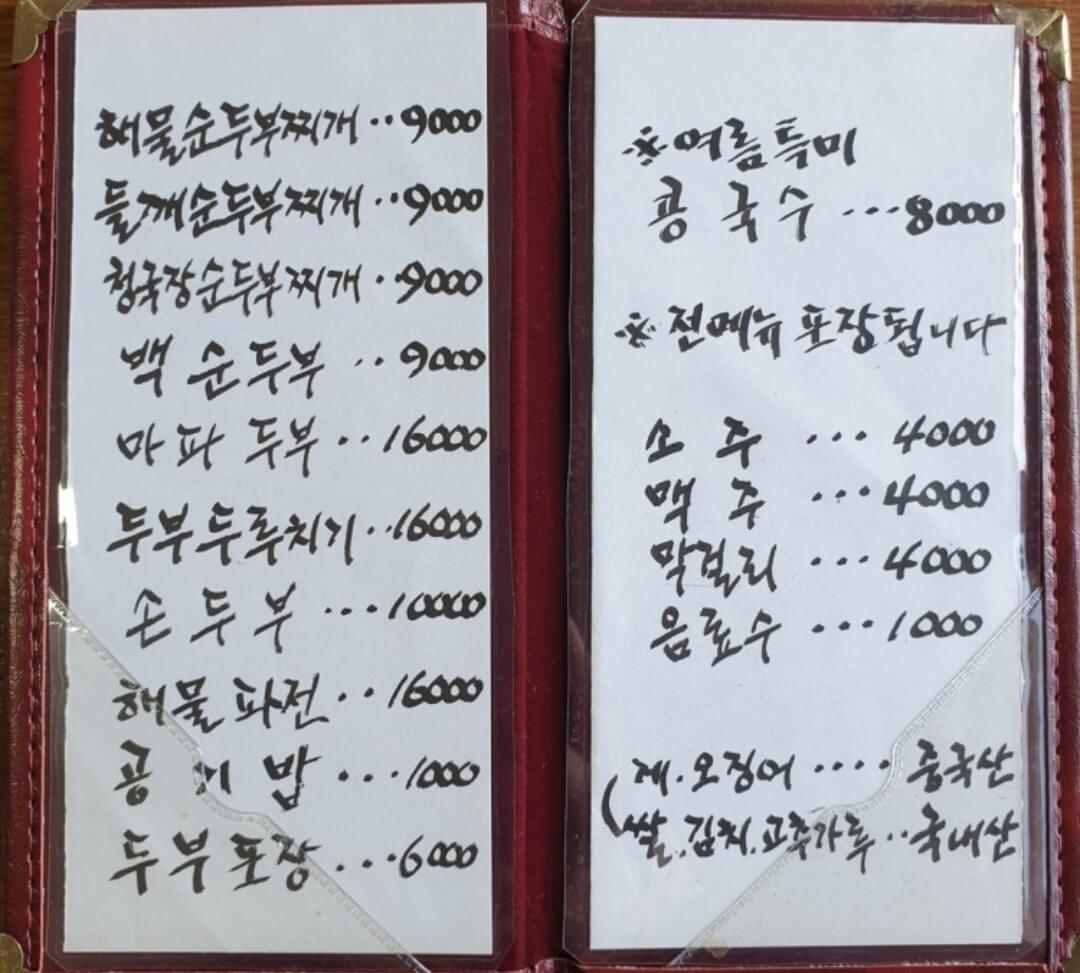 해물순두부찌개..9000
들깨순두부찌개..9000
청국장순두부찌개.9000
백순두부..9000
마파두부..16000
두부두루치기..16000
손두부...10000
해물파전..16000
공기밥...1000
두부포장...6000
※여름특미
콩국수...8000
※전메뉴 포장됩니다
소주...4000
맥주...4000
막걸리...4000
음료수...1000
(깨.오징어....중국산
쌀.김치.고추가루..국내산